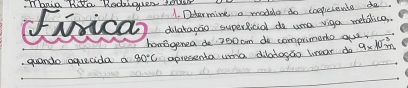 Maria Rita Rodrigues
1. Determine o modulo do coeficiente de
Física
dilatação superficial de uma viga metálica,
homôgenea de 750cm de comprimento que,
quando aquecida a 90°C apresenta uma dilatação linear de 9x10⁻³m